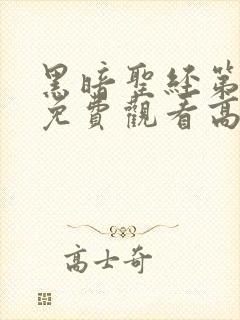 黑暗聖經第
免費觀看高
高士奇